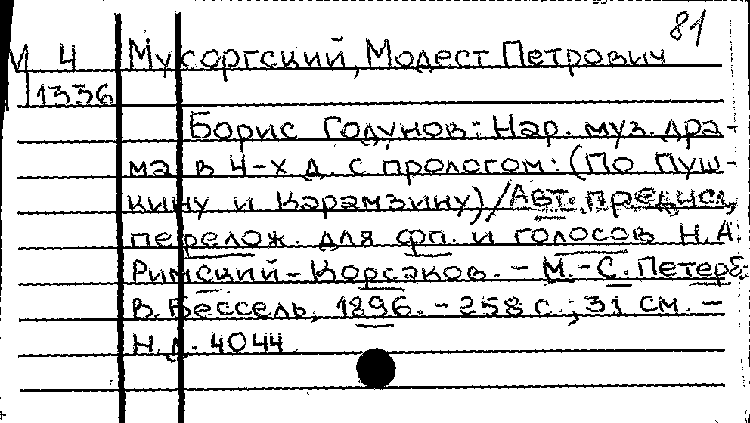 81
М 4 Мусоргский, Модест Петрович
1336
Борис Годунов: Нар. муз. дра-
ма в 4-х д. с прологом: (По Пуш-
кину и Карамзину)/Авт. предисл.,
перелож. для фп. и голосов Н.А.
Римский-Корсаков. - М.-С. Петерб:
В. Бессель, 1896. - 258 с.; 31 см. -
Н.д. 4044